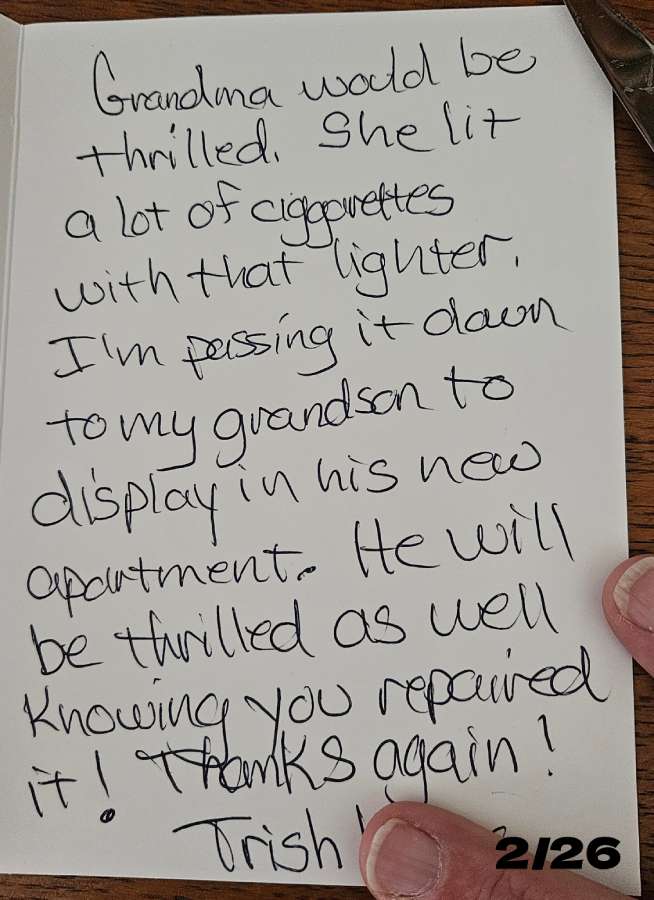 Grandma would be
thrilled. She lit
a lot of ciggarettes
with that lighter.
I'm passing it down
to my grandson to
display in his new
apartment. He will
be thrilled as well
Knowing you repaired
it! Thanks again!
Trish
2/26